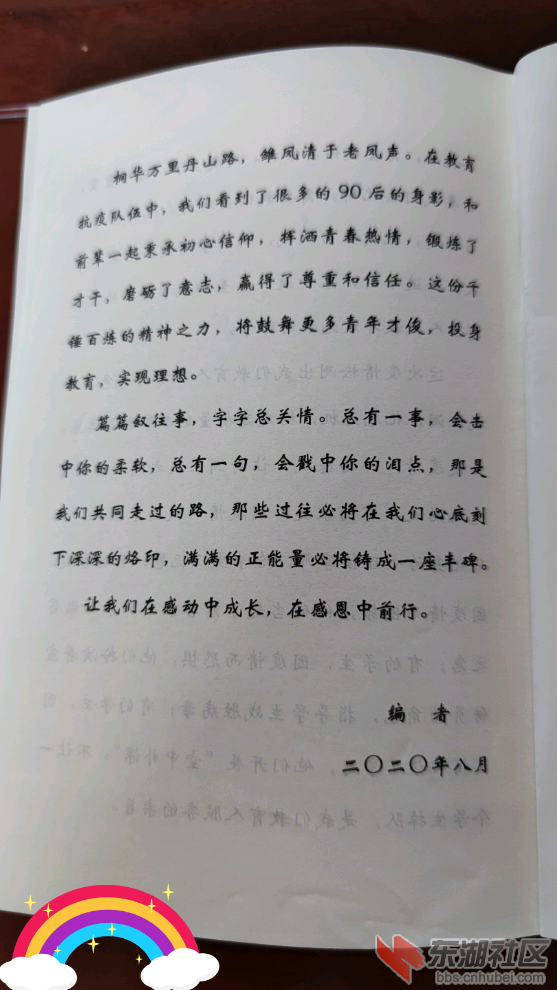 桐华万里丹山路，雏凤清于老凤声。在教育
抗疫队伍中，我们看到了很多的90后的身影，和
前辈一起秉承初心信仰，挥洒青春热情，锻炼了
才干，磨砺了意志，赢得了尊重和信任。这份千
锤百炼的精神之力，将鼓舞更多青年才俊，投身
教育，实现理想。
篇篇叙往事，字字总关情。总有一事，会击
中你的柔软，总有一句，会戳中你的泪点，那是
我们共同走过的路，那些过往必将在我们心底刻
下深深的烙印，满满的正能量必将铸成一座丰碑。
让我们在感动中成长，在感恩中前行。
编 者
二〇二〇年八月
东湖社区
bbs.cnhubei.com